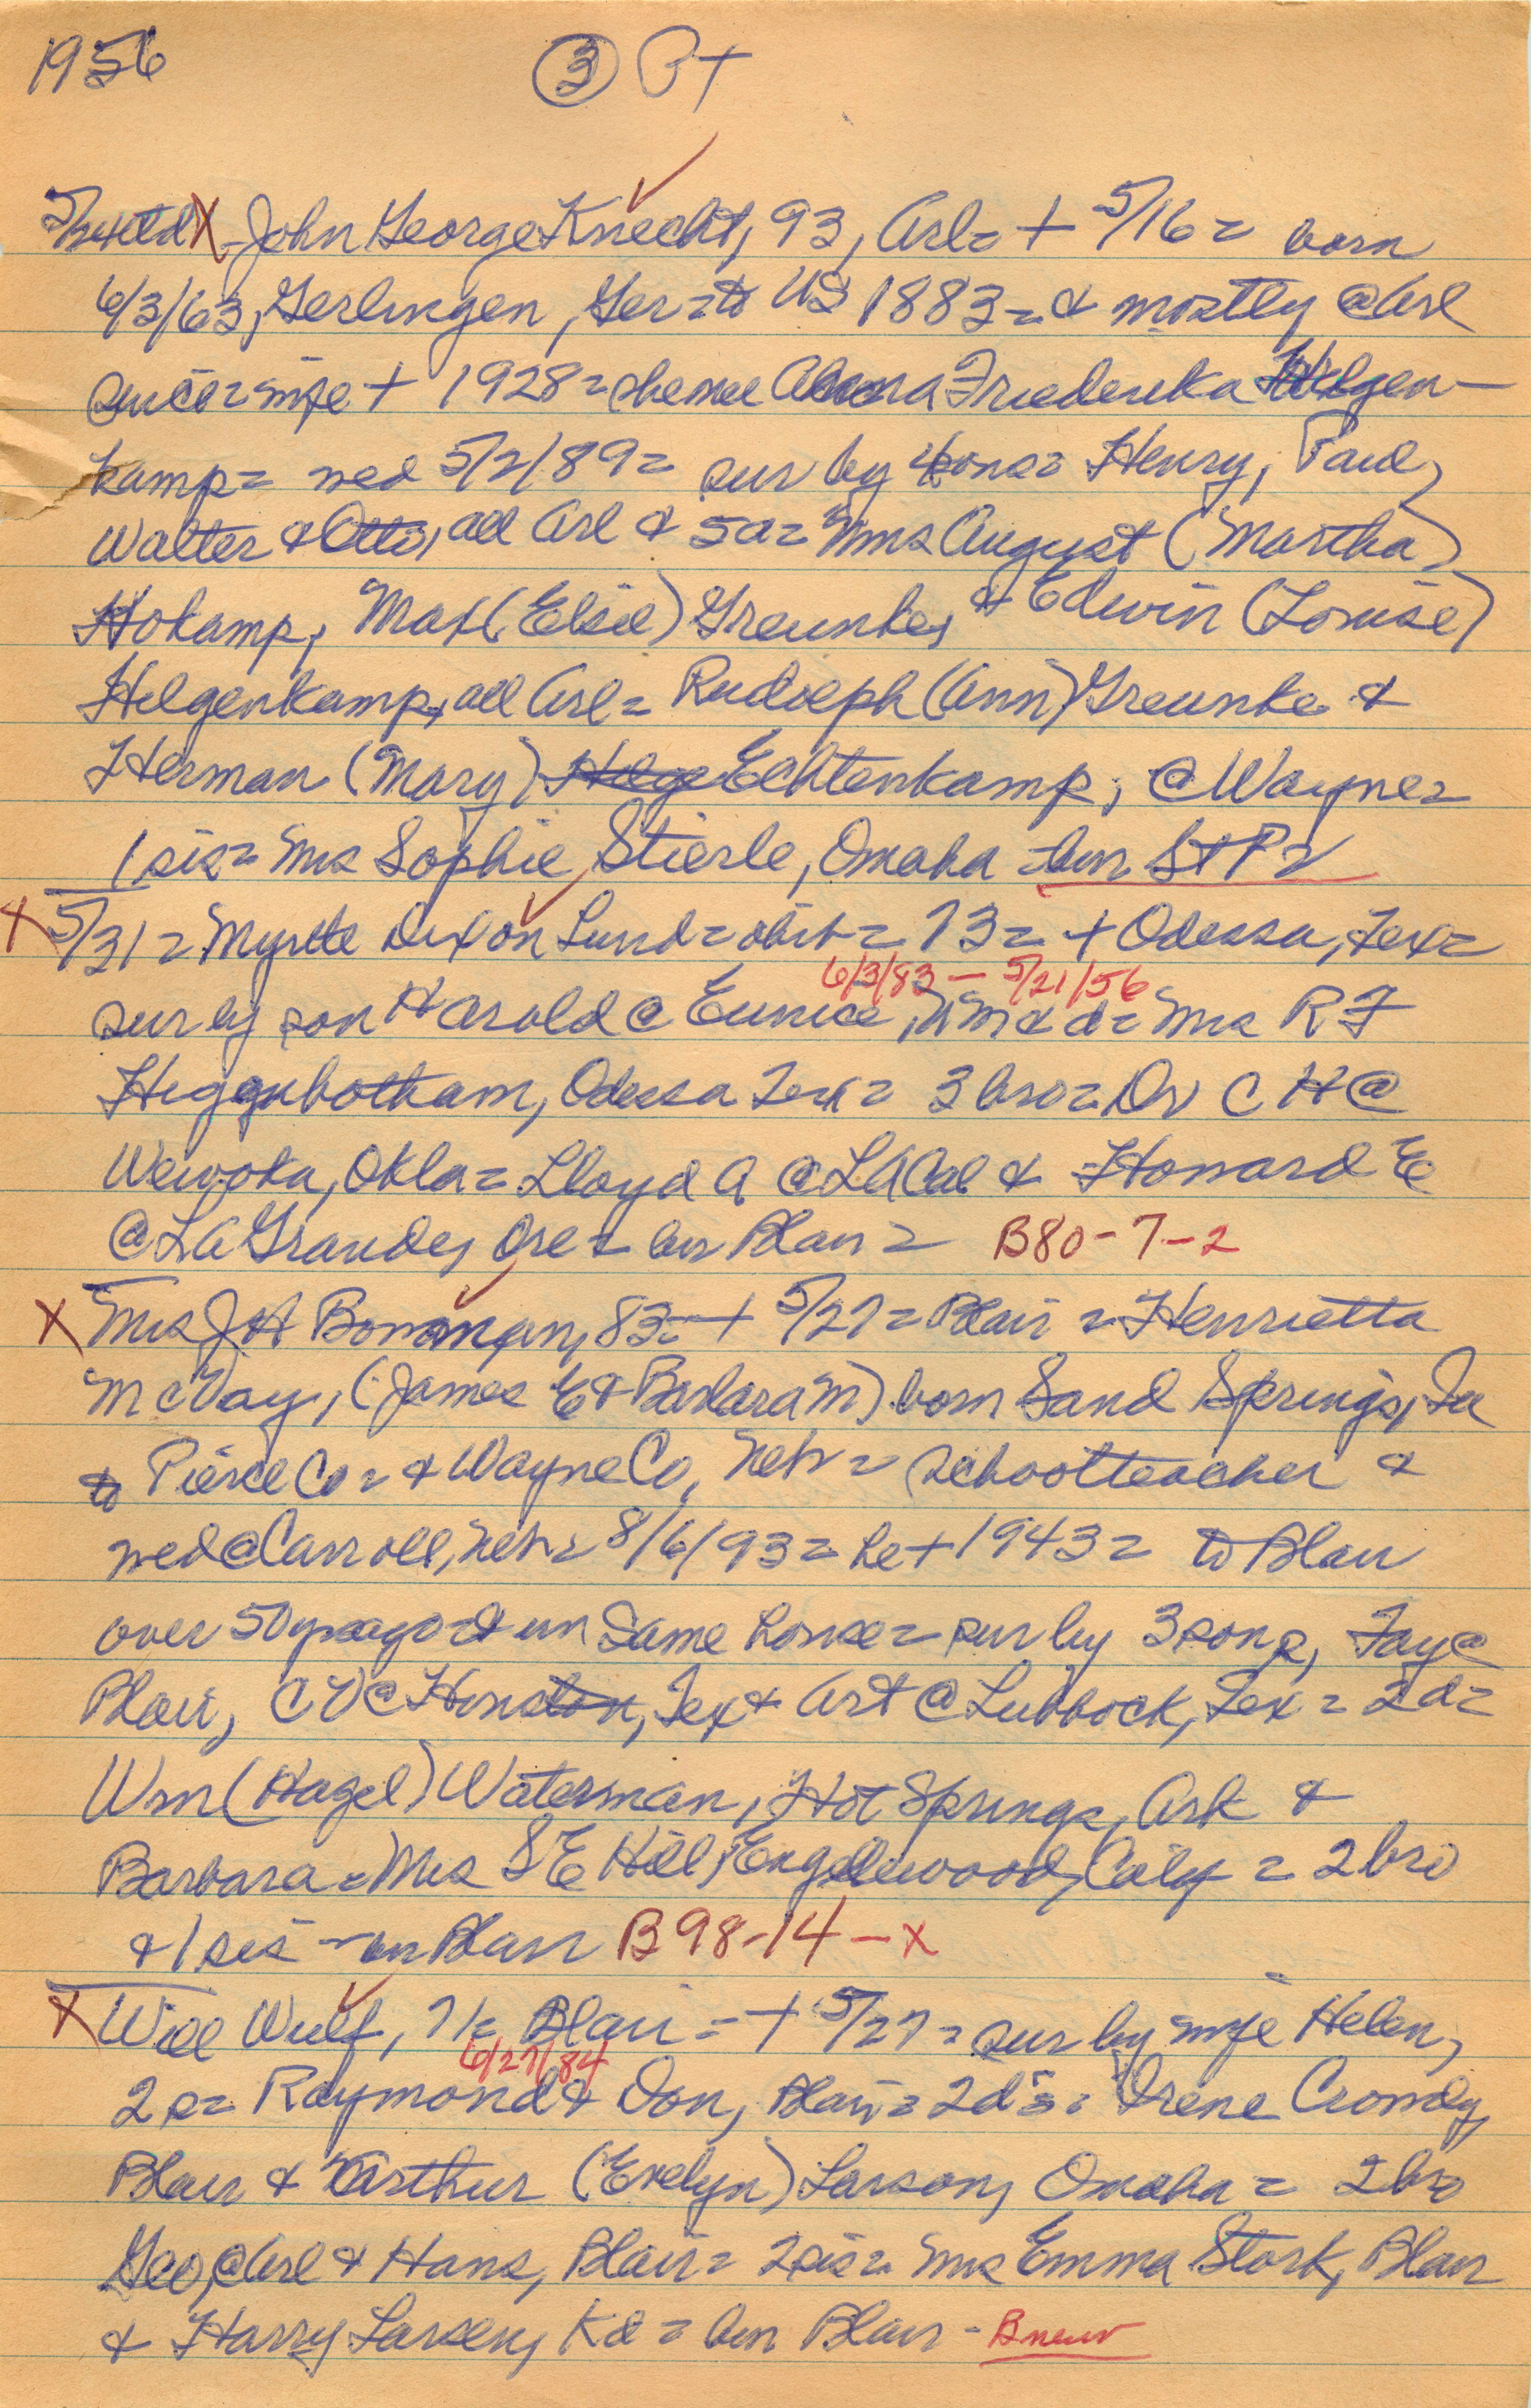 1956 ③ Pt
X John George Knecht, 93, Arl = + 5/16 = born
6/3/63, Gerlingen, Ger = to US 1883 = & mostly @ Arl
since = wife + 1928 = she nee Friederika Hilgen-
kamp = wed 5/2/89 = sur by 4 sons = Henry, Paul,
Walter & Otto, all Arl & 5 d = Mms August (Martha)
Hokamp, Max (Elsie) Greunke, & Edwin (Louise)
Hilgenkamp, all Arl = Rudolph (Ann) Greunke &
Herman (Mary) Hilge Echtenkamp, @ Wayne =
1 sis = Mrs Sophie Stierle, Omaha = bur St P =
X 5/31 = Myrtle Dixon Lund = obit = 73 = + Odessa, Tex =
6/3/83 - 5/21/56
sur by son Harold @ Eunice, NM & d = Mrs R F
Higginbotham, Odessa Tex = 3 bro = Dr C H @
Wewoka, Okla = Lloyd A @ LA Cal & Howard E
@ LaGrande, Ore = bur Blair = B80-7-2
X Mrs J H Bowman, 83 = + 5/27 = Blair = Henrietta
McVay, (James E & Barbara M) born Sand Springs, Ia
to Pierce Co = & Wayne Co, Neb = schoolteacher &
wed @ Carroll, Neb = 8/6/93 = he + 1943 = to Blair
over 50 yrs ago & in same house = sur by 3 sons, Fay @
Blair, C V @ Houston, Tex & Art @ Lubbock, Tex = 2 d =
Wm (Hazel) Waterman, Hot Springs, Ark &
Barbara = Mrs S E Hill, Engelewood, Calif = 2 bro
& 1 sis - bur Blair B98-14-X
X Will Wulf, 71 = Blair = + 5/27 = sur by wife Helen,
6/27/84
2 s = Raymond & Don, Blair = 2 d's = Irene Cromdy,
Blair & Arthur (Evelyn) Larson, Omaha = 2 bro
Geo, @ Arl & Hans, Blair = 2 sis = Mrs Emma Stork, Blair
& Harry Larsen, Kd = bur Blair - B new